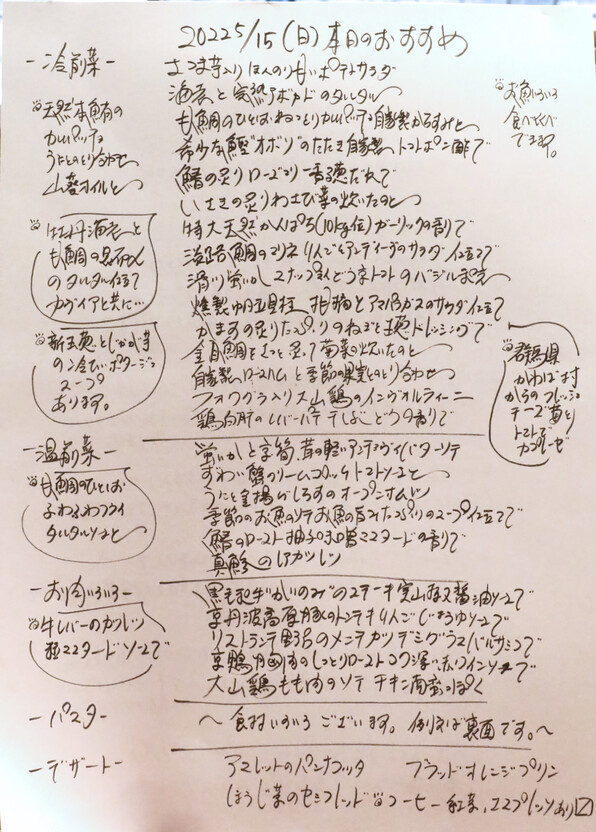 20225/15(日)本日のおすすめ
-冷前菜-
さつま芋入りほんのり甘いポテトサラダ
天然本鮪の
カルパッチョ
うにとのとり合わせ
山葵オイルと
海老と完熟アボカドのタルタル
も鯛のひとはねっとりカルパッチョ自家製からすみと
希少な鰹"オボソ"のたたき自家製トマトポン酢で
鰆の炙りローズマリー香る穂だれで
いさきの炙りわさび菜の炊いたのと
特大天然かんぱち(10kg位)ガーリックの香りで
淡路鯛のマリネりんごとアンディーブのサラダ仕立て
滑川蛍いかスナップえんどう豆トマトのバジルまぜ
燻製帆立貝柱柑橘とアスパラガスのサラダ仕立て
かますの炙りたっぷりのねぎと玉葱ドレッシングで
金目鯛をさっと炙って菊菜の炊いたのと
自家製ロースハムと季節の果実とのとり合わせ
フォワグラ入り大山鶏のインヴォルティーニ
鶏白肝のレバーパテ干しぶどうの香りで
お魚いろいろ
食べくらべ
できます。
牡丹海老と
も鯛の昆布〆
のタルタル仕立て
カヴィアと共に…
新玉葱とじゃが芋
の冷たいポタージュ
スープ
あります。
群馬県
かわば村
からのフレッシュ
チーズ苺と
トマトで
カプレーゼ
-温前菜-
も鯛のひとはお
ふわふわフライ
タルタルソースと
蛍いかと京筍、茸の軽いアンチョヴィバターソテー
ずわい蟹のクリームコロッケトマトソースと
うにと釜揚げしらすのオープンオムレツ
季節のお魚のソテーお魚の旨みたっぷりのスープ仕立てで
鰆のロースト柚子味噌マスタードの香りで
真鯵のレアカツレツ
-お肉いろいろ-
牛レバーのカツレツ
粒マスタードソースで
黒毛和牛"かいのみ"のステーキ実山椒醤油ソースで
京丹波高原豚のトンテキりんごじょうゆソースで
リストランテ野呂のメンチカツデミグラスバルサミコで
京鴨胸肉のしっとりローストコク深い赤ワインソースで
大山鶏もも肉のソテーチキン南蛮っぽく
-パスタ-
～食材いろいろございます。例えば裏面です。～
-デザート-
アマレットのパンナコッタ ブラッドオレンジプリン
ほうじ茶のセミフレッド コーヒー、紅茶、エスプレッソあり